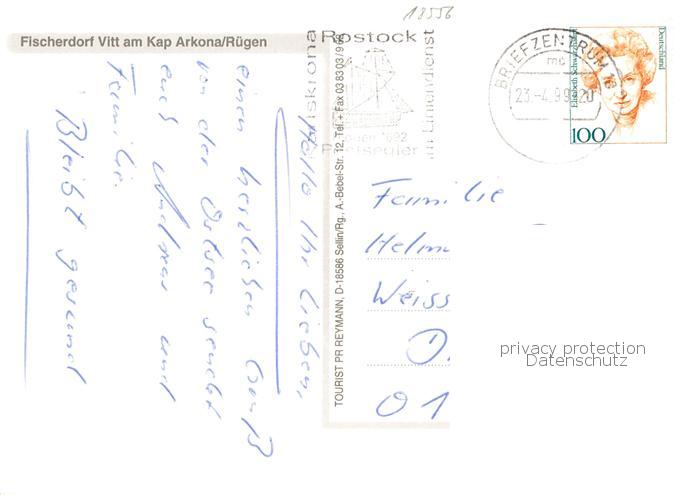 18556
Fischerdorf Vitt am Kap Arkona/Rügen
Hallo Ihr Lieben,
einen herzlichen Gruß
von der Ostsee sendet
euch Andreas und
Familie.
Bleibt gesund
TOURIST PR REYMANN, D-18586 Sellin/Rg., A.-Bebel-Str. 12, Tel.+ Fax 03 83 03/9
Rostock
BRIEFZENTRUM 18
mc
23.-4.99.-20
Deutschland
100
Familie
Helm
Weiss
D.
01
privacy protection
Datenschutz